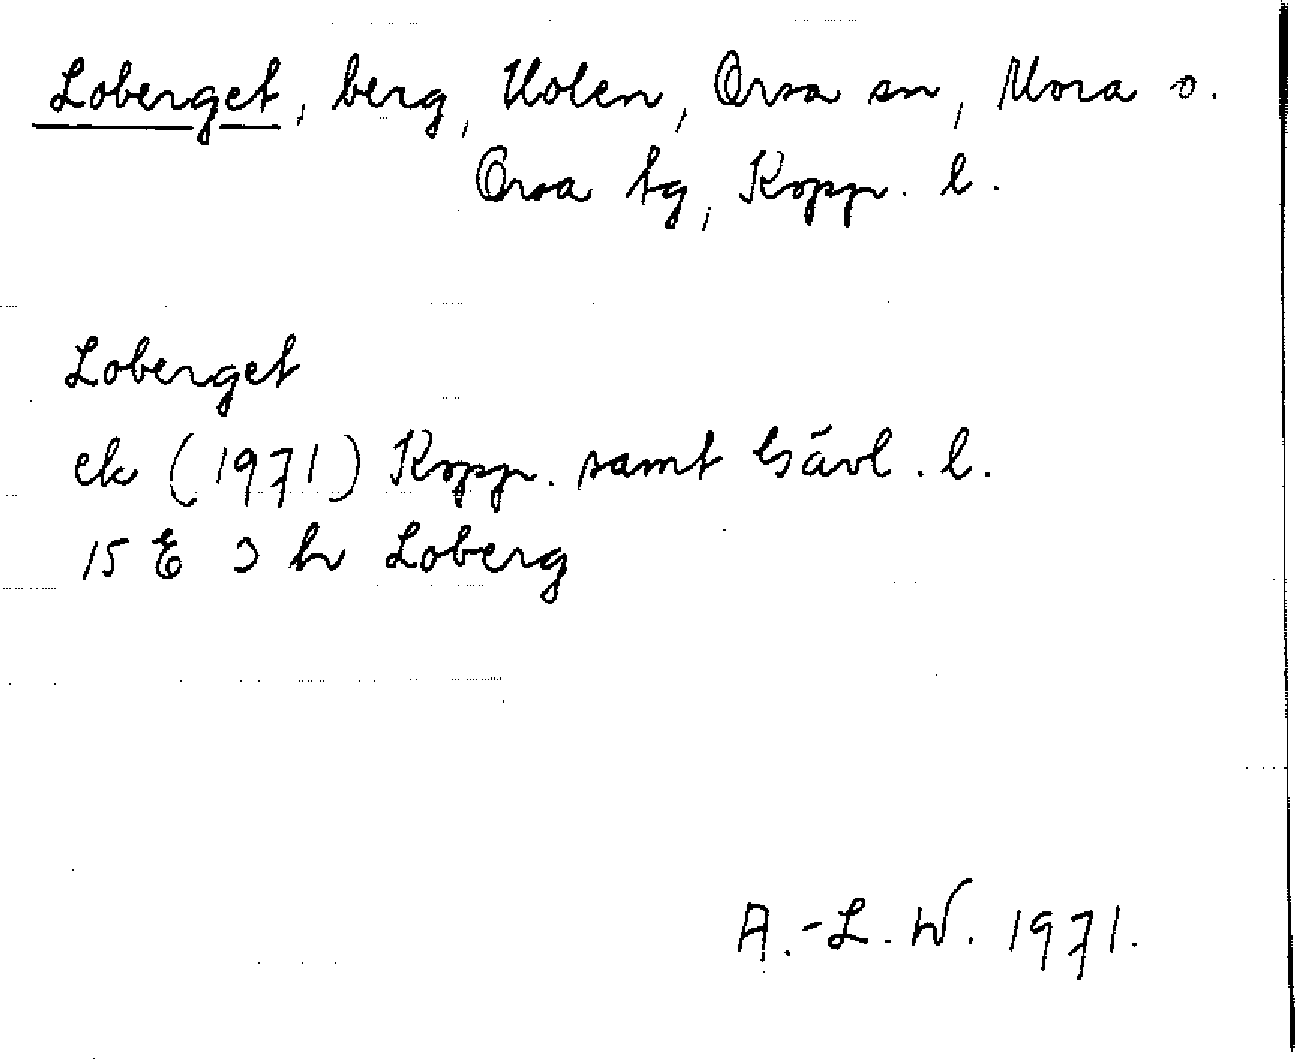 Loberget, berg, Holen, Orsa sn, Mora o.
Orsa tg, Kopp. l.
Loberget
ek (1971) Kopp. samt Gävl. l.
15 E 3 h Loberg
A.-L. W. 1971.